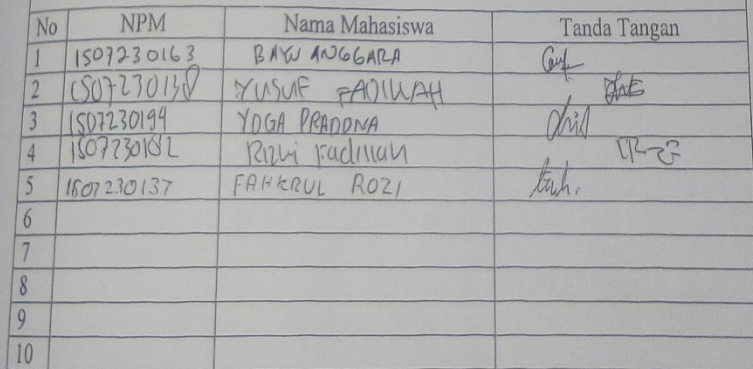 No NPM Nama Mahasiswa Tanda Tangan
1 1507230163 BAYU ANGGARA
2 1507230138 YUSUF FADILLAH
3 1507230194 YOGA PRADONA
4 1507230182 Rizki Fadillah
5 1507230137 FAHKRUL ROZI
6
7
8
9
10